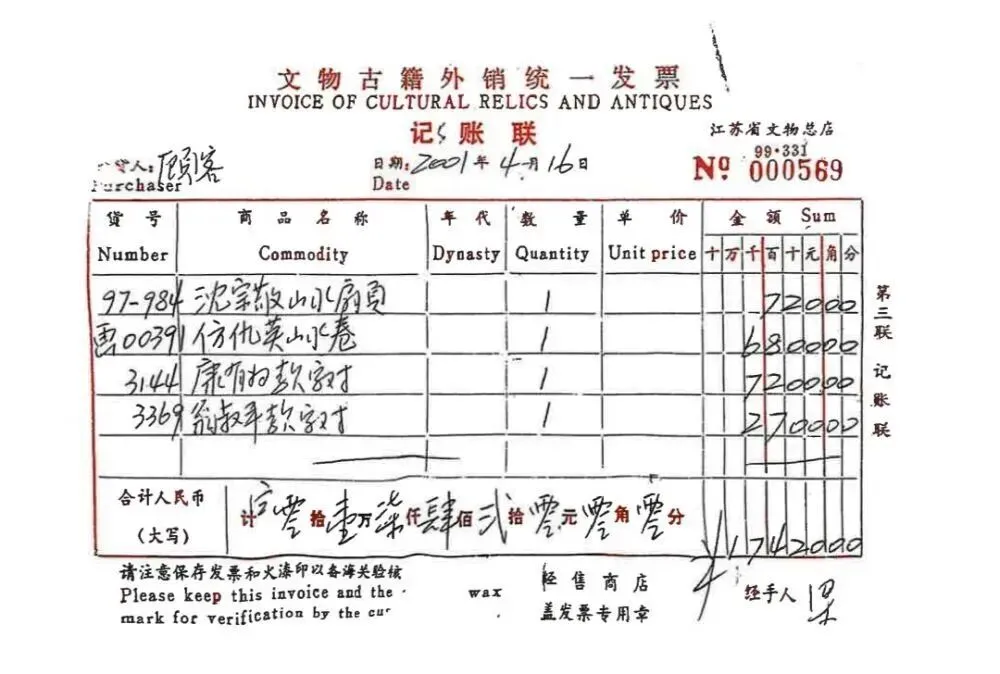 文物古籍外销统一发票
INVOICE OF CULTURAL RELICS AND ANTIQUES
记账联
江苏省文物总店
货人:顾客 日期:2001年4月16日 99·331
Purchaser Date Nº 000569
货号 商品名称 年代 数量 单价 金额 Sum
Number Commodity Dynasty Quantity Unit price 十万千百十元角分
97-984 沈宗敬山水扇页 1 72000
画00391 仿仇英山水卷 1 680000
3144 康有为款字对 1 720000
3369 翁叔平款字对 1 270000
合计人民币
(大写)
计零拾壹万柒仟肆佰贰拾零元零角零分
¥1742000
第三联 记账联
请注意保存发票和火漆印以备海关验核
Please keep this invoice and the wax
mark for verification by the cus
经售商店
盖发票专用章
经手人